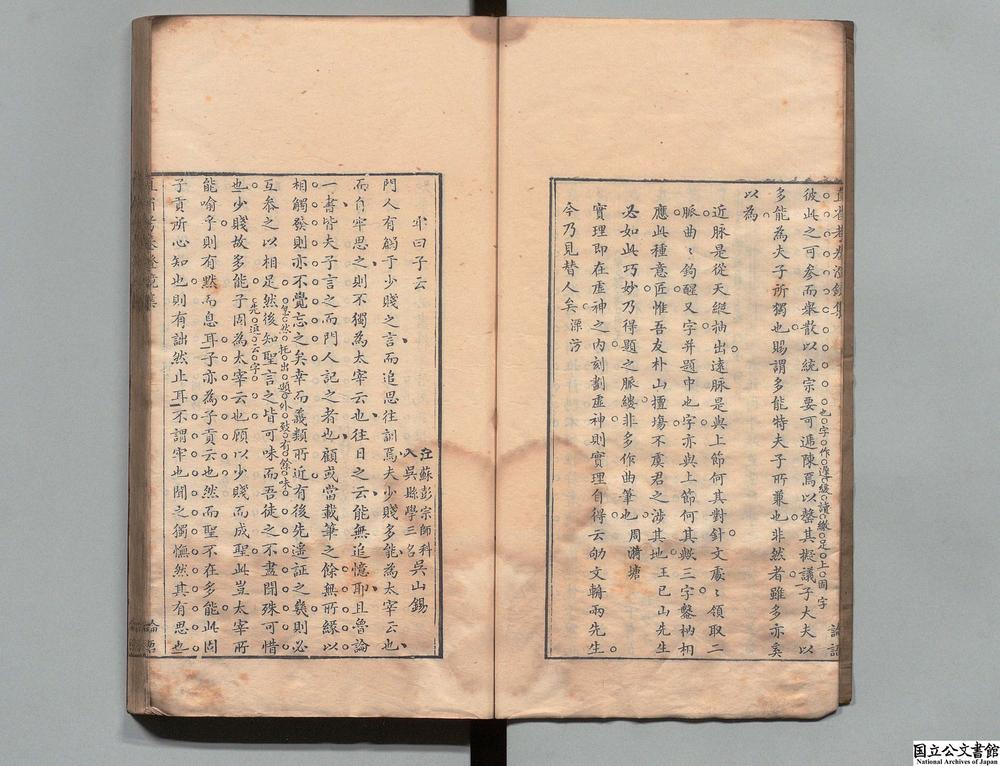 彼此之可參而舉散以統宗要可遞陳焉以罄其擬議子大夫以
也字作遵緩讀繳足上固字
多能為夫子所獨也賜謂多能特夫子所兼也非然者雖多亦奚
以為
近脉是從天縱抽出遠脉是與上節何其對針文處〻領取二
脈曲〻鉤醒又字并題中也字亦與上節何其歟三字鑿枘相
應此種意匠惟吾友朴山擅塲不虞君之涉其地 王巳山先生
必如此巧妙乃得題之脈縷非多作曲筆也 周漪塘
實理即在虛神之內刻劃虛神則實理自得云劬文輈兩先生
今乃見替人矣
論語
牢曰子云
江蘇彭宗師科
入吳縣學三名 吳山錫
門人有觸于少賤之言而追思往訓焉夫少賤多能為太宰云也
而自牢思之則不獨為太宰云也往日之云能無追憶耶且魯論
一書皆夫子言之而門人記之者也顧或當載筆之餘無所緣以
相觸發則亦不覺忘之矣幸而義類所近有後先遙証之㡬則必
互叅之以相足然後知聖言之皆可味而吾徒之不盡聞殊可惜
忽然托出題外致有餘味
也少賤故多能子固為太宰云也顧以少賤而成聖此豈太宰所
先逗云字
能喻乎則有默而息耳子亦為子貢云也然而聖不在多能此固
子貢所心知也則有詘然止耳不謂牢也聞之獨憮然其有思也
論語
国立公文書館
National Archives of Japan